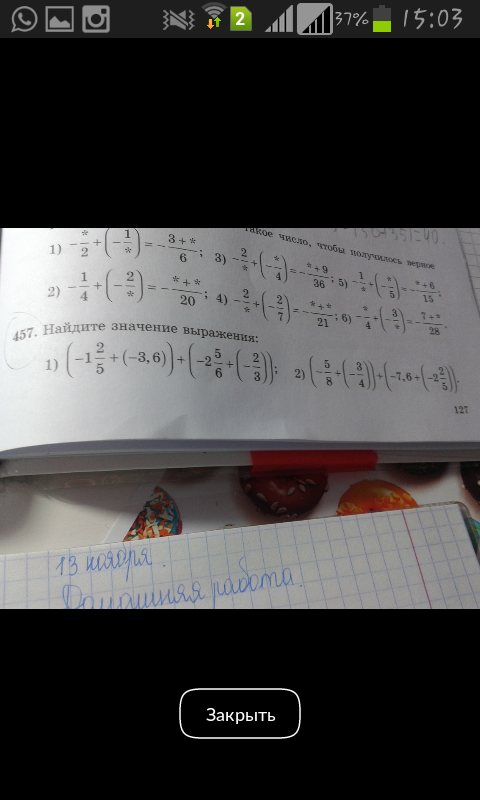 2 37% 15:03
такое число, чтобы получилось верное
1) −*/2 + (−1/*) = −(3+*)/6; 3) −2/* + (−*/4) = −(*+9)/36; 5) −1/* + (−*/5) = −(*+6)/15;
2) −1/4 + (−2/*) = −(*+*)/20; 4) −2/* + (−2/7) = −(*+*)/21; 6) −*/4 + (−3/*) = −(7+*)/28.
457. Найдите значение выражения:
1) (−1 2/5 + (−3,6)) + (−2 5/6 + (−2/3)); 2) (−5/8 + (−3/4)) + (−7,6 + (−2 2/5)).
127
13 ноября.
Домашняя работа.
Закрыть